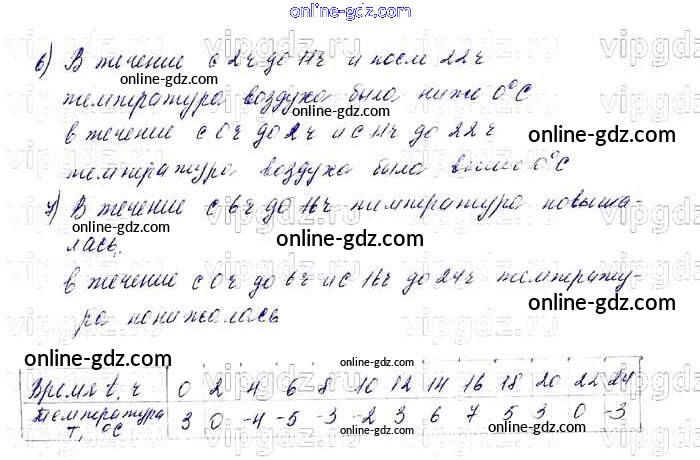 online-gdz.com
6) В течение с 2ч до 11ч и после 22ч
online-gdz.com
температура воздуха была ниже 0°С
в течение с 0ч до 2ч и с 11ч до 22ч
online-gdz.com
температура воздуха была выше 0°С
online-gdz.com
7) В течение с 6ч до 16ч температура повыша-
лась.
online-gdz.com
в течение с 0ч до 6ч и с 16ч до 24ч температу-
online-gdz.com
ра понижалась
online-gdz.com
online-gdz.com
Время t, ч 0 2 4 6 8 10 12 14 16 18 20 22 24
Температура T, °С 3 0 -4 -5 -3 -2 3 6 7 5 3 0 -3
online-gdz.com
online-gdz.com